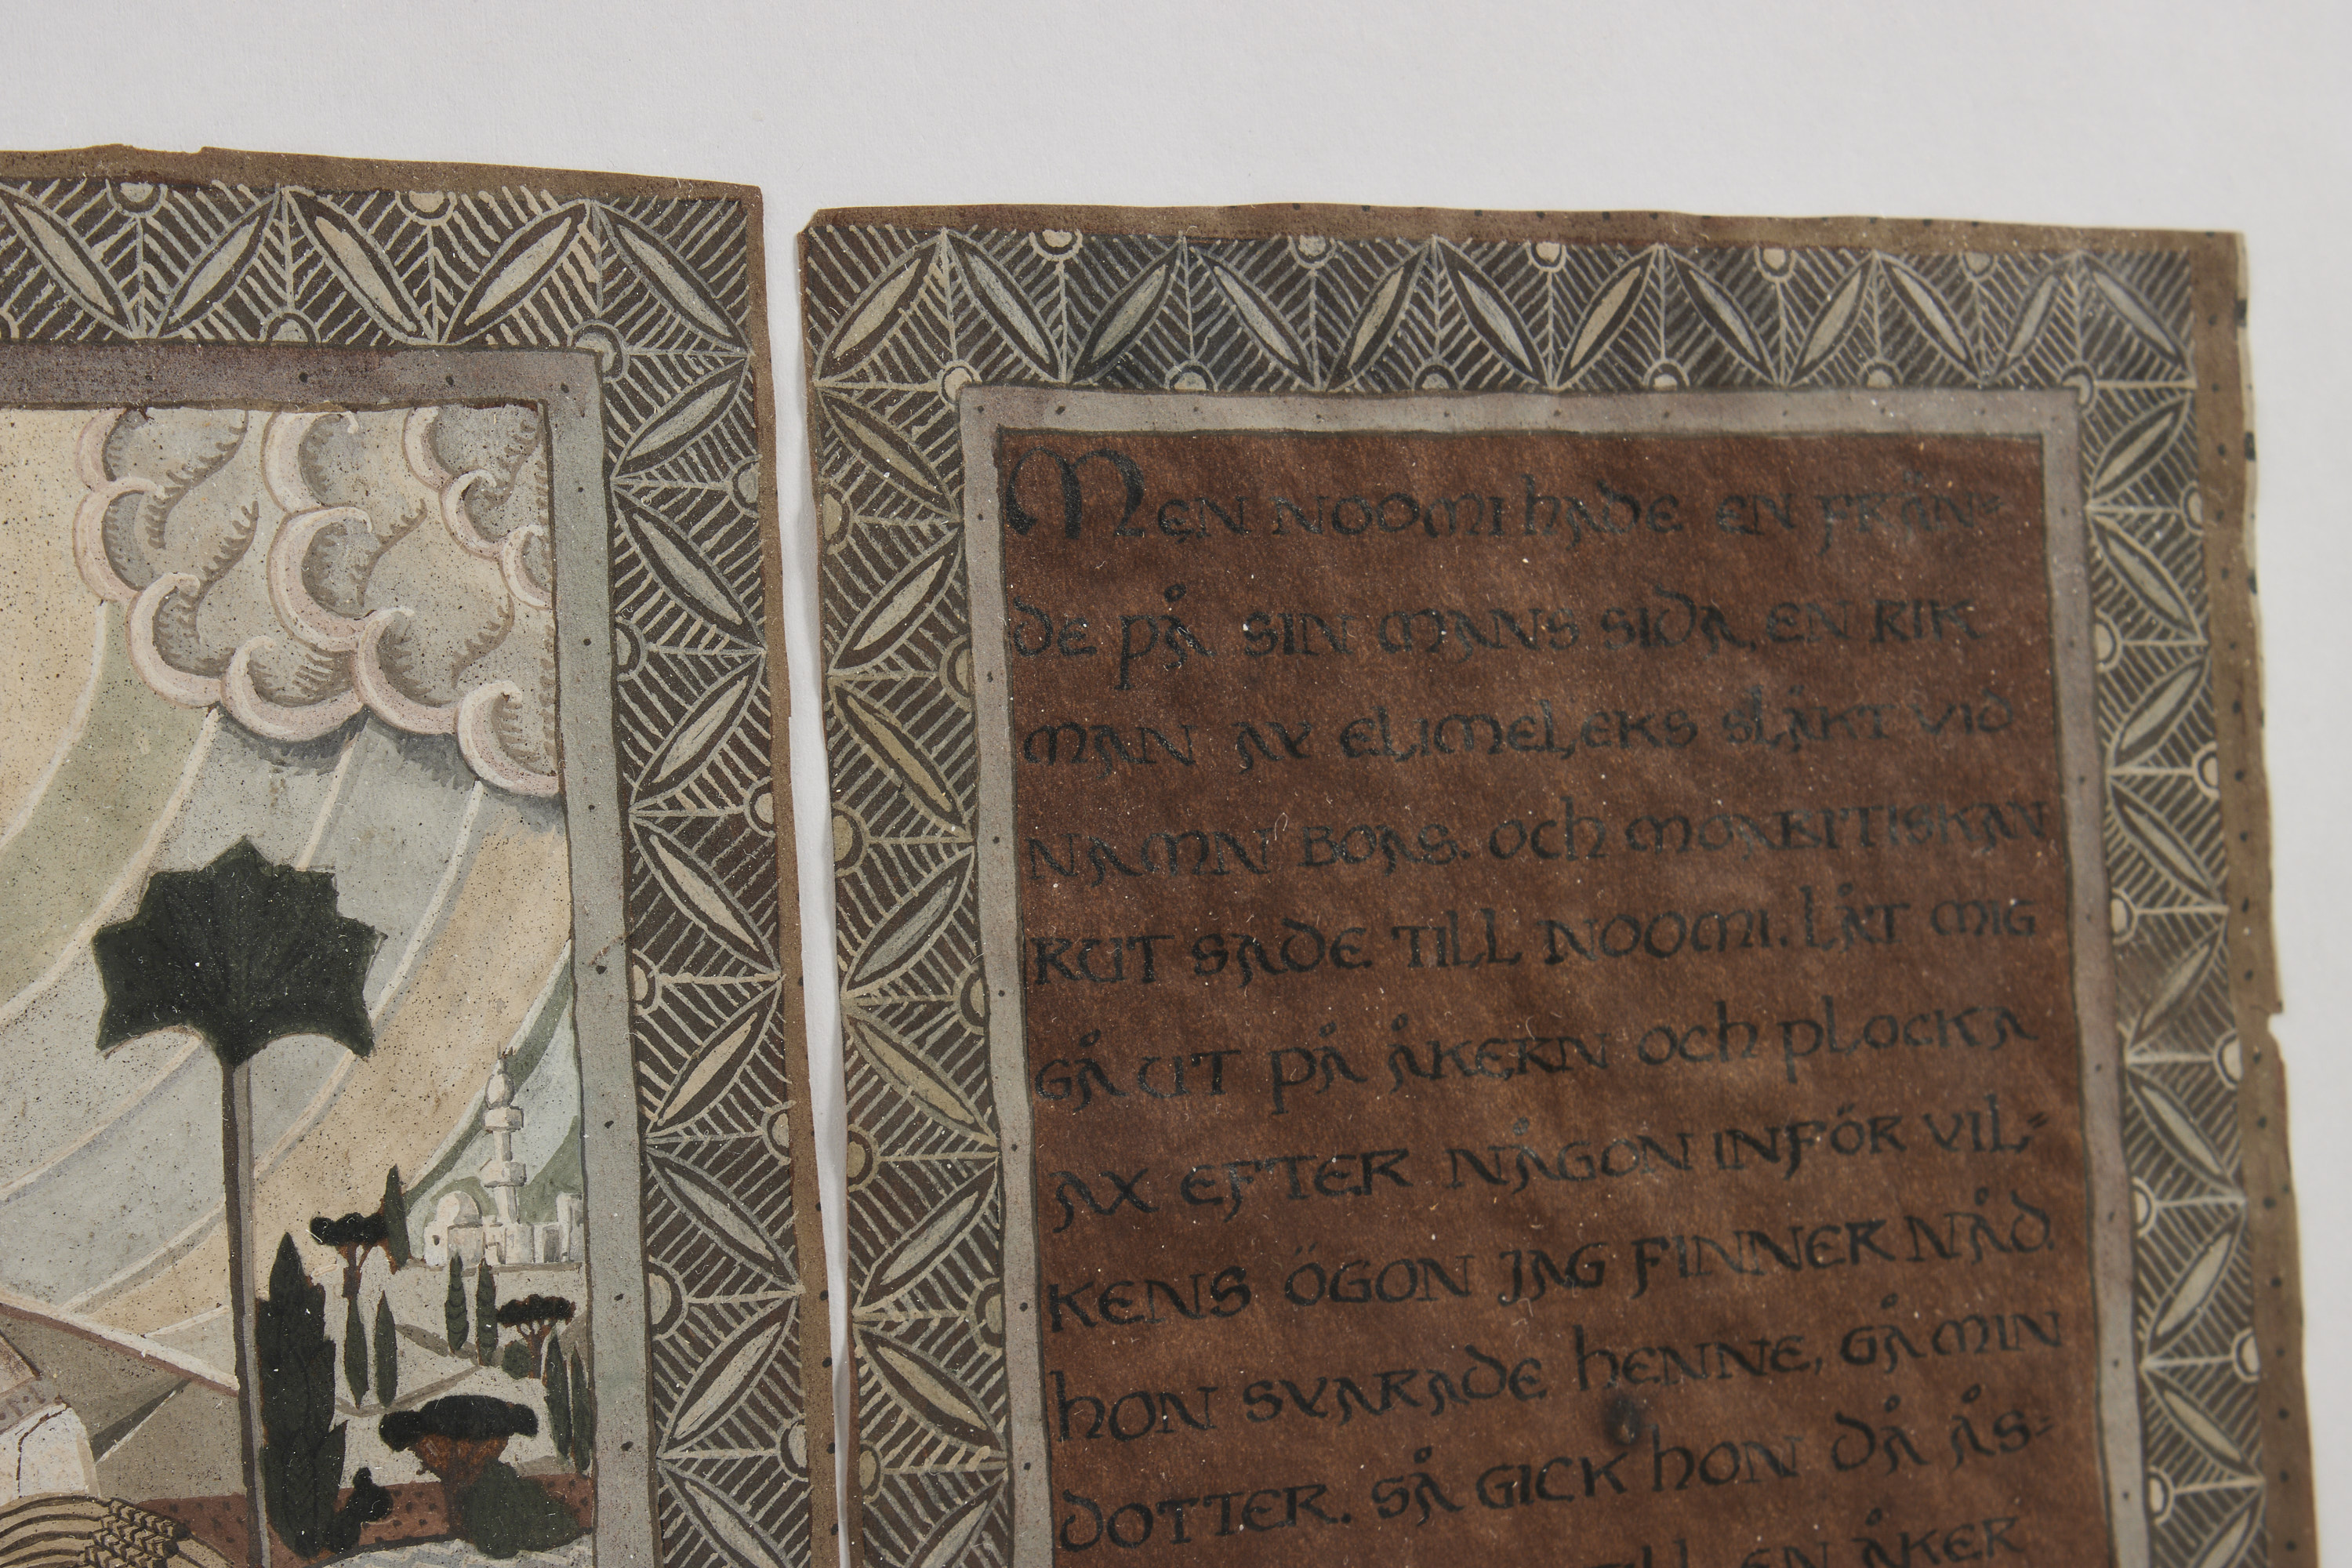 MEN NOOMI HADE EN FRÄN=
DE PÅ SIN MANS SIDA, EN RIK
MAN AV ELIMELEKS SLÄKT VID
NAMN BOAS. OCH MOABITISKAN
RUT SADE TILL NOOMI. LÅT MIG
GÅ UT PÅ ÅKERN OCH PLOCKA
AX EFTER NÅGON INFÖR VIL=
KENS ÖGON JAG FINNER NÅD.
HON SVARADE HENNE, GÅ MIN
DOTTER. SÅ GICK HON DÅ ÅS=
TILL EN ÅKER